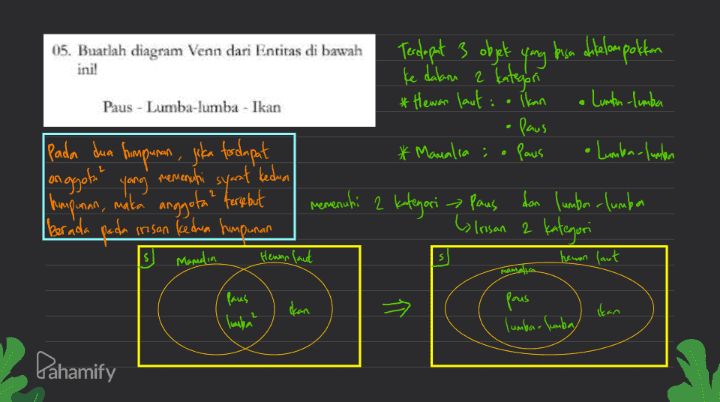 05. Buatlah diagram Venn dari Entitas di bawah
ini!
Paus - Lumba-lumba - Ikan
Terdapat 3 objek yang bisa dikelompokkan
ke dalam 2 kategori
* Hewan laut : • Ikan • Lumba-lumba
• Paus
* Mamalia : • Paus • Lumba-lumba
Pada dua himpunan, jika terdapat
anggota² yang memenuhi syarat kedua
himpunan, maka anggota² tersebut
berada pada irisan kedua himpunan
Memenuhi 2 kategori → Paus dan lumba-lumba
↳ Irisan 2 kategori
S Mamalia Hewan laut
Paus
lumba² ikan
⇒
S hewan laut
mamalia
Paus
lumba-lumba ikan
Pahamify